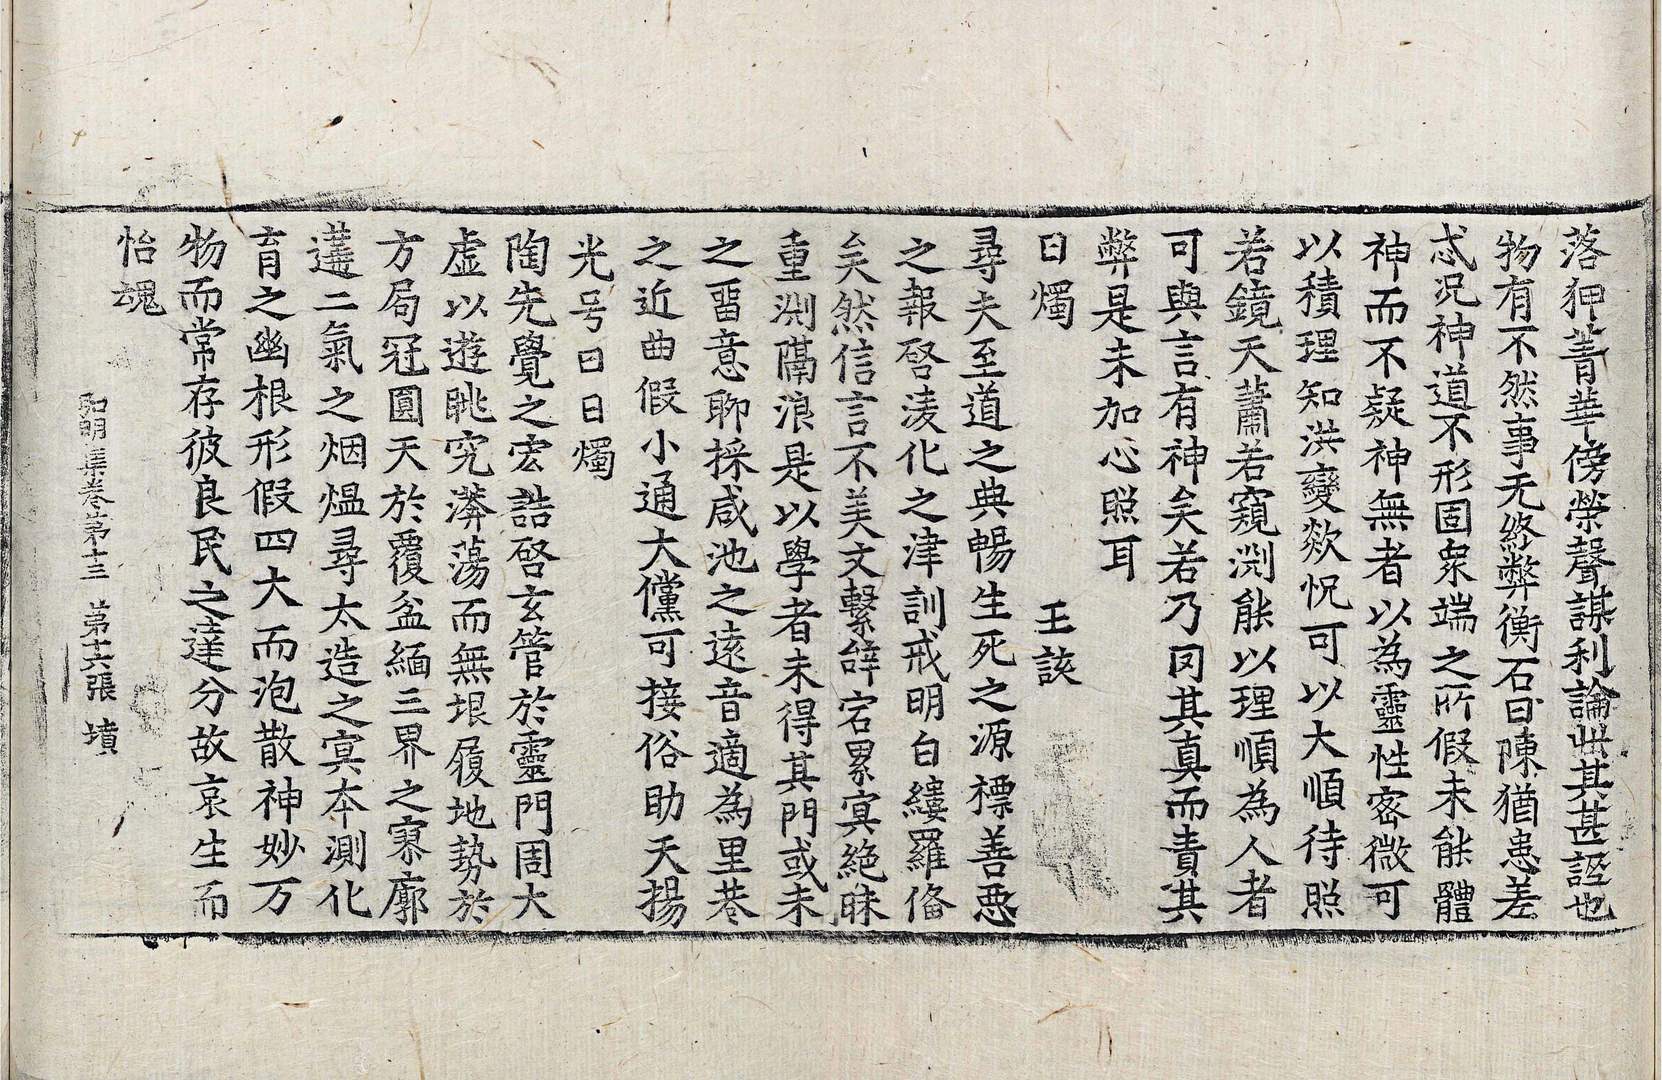 落狎菁華傍榮聲謀利論世其甚誣也
物有不然事无終弊衡石日陳猶患差
忒況神道不形固衆端之所假未能體
神而不疑神無者以為靈性密微可
以積理知洪變欻怳可以大順待照
若鏡天蕭若窺渕能以理順為人者
可與言有神矣若乃罔其真而責其
弊是未加心照耳
日燭　王該
尋夫至道之典暢生死之源標善惡
之報啓淩化之津訓戒明白縷羅俻
矣然信言不美文繫辝宕累冥絶昧
重渕隔浪是以學者未得其門或未
之畱意聊採咸池之遠音適為里巷
之近曲假小通大儻可接俗助天揚
光号曰日燭
陶先覺之宏誥啓玄管於靈門周大
虛以遊眺究漭蕩而無垠履地勢於
方局冠圓天於覆盆緬三界之寥廓
遘二氣之烟熅尋太造之冥本測化
育之幽根形假四大而泡散神妙万
物而常存彼良民之達分故哀生而
怡魂
弘明集卷第十三　第十六張　墳